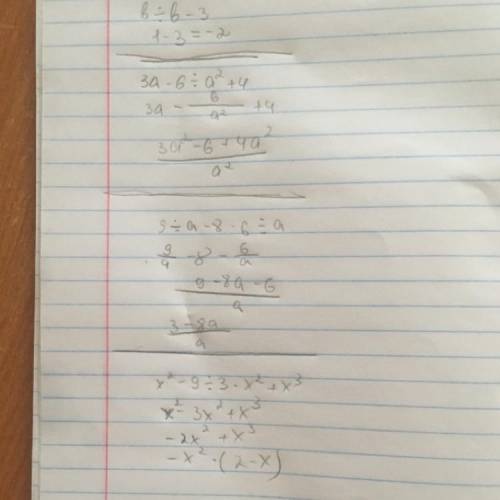 b ÷ b - 3
1 - 3 = -2
3a - 6 ÷ a² + 4
3a - 6/a² + 4
(3a² - 6 + 4a²)/a²
9 ÷ a - 8 - 6 ÷ a
9/a - 8 - 6/a
(9 - 8a - 6)/a
(3 - 8a)/a
x² - 9 ÷ 3 · x² + x³
x² - 3x² + x³
-2x² + x³
-x² · (2 - x)